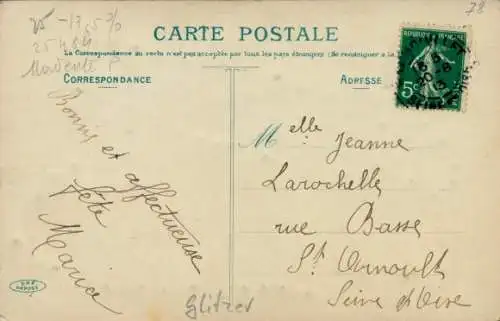 28
CARTE POSTALE
La Correspondance au recto n'est pas acceptée par tous les pays étrangers (Se renseigner à la
CORRESPONDANCE
ADRESSE
RÉPUBLIQUE FRANÇAISE
5c
Bonne et affectueuse
fête
Marie
Melle Jeanne
Larochelle
rue Basse
St Arnoult
Seine et Oise
DÉPOSÉ
Glitzer